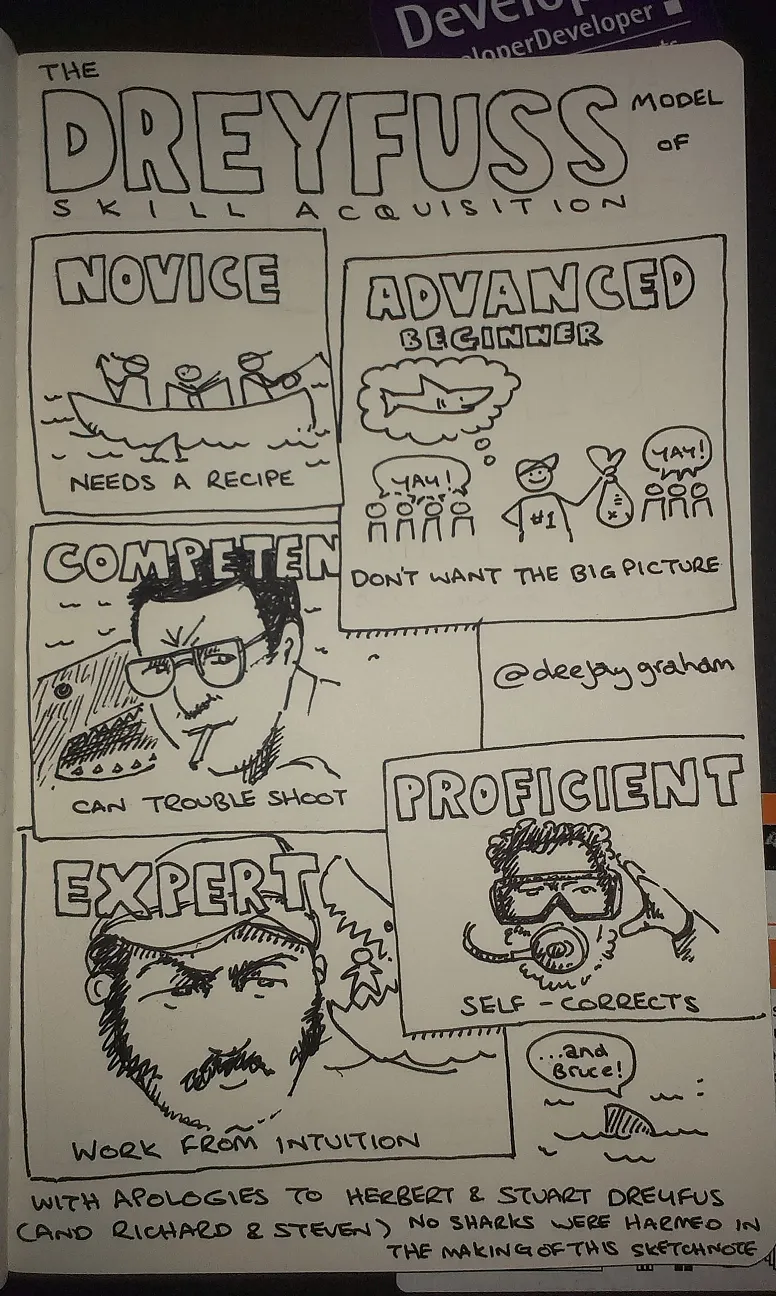 Develop
loperDeveloper
THE
DREYFUSS MODEL
OF
SKILL ACQUISITION
NOVICE
NEEDS A RECIPE
ADVANCED
BEGINNER
YAY!
YAY!
#1
DON'T WANT THE BIG PICTURE
COMPETEN
CAN TROUBLE SHOOT
@deejaygraham
PROFICIENT
SELF-CORRECTS
EXPERT
WORK FROM INTUITION
...and
Bruce!
WITH APOLOGIES TO HERBERT & STUART DREYFUS
(AND RICHARD & STEVEN) NO SHARKS WERE HARMED IN
THE MAKING OF THIS SKETCHNOTE